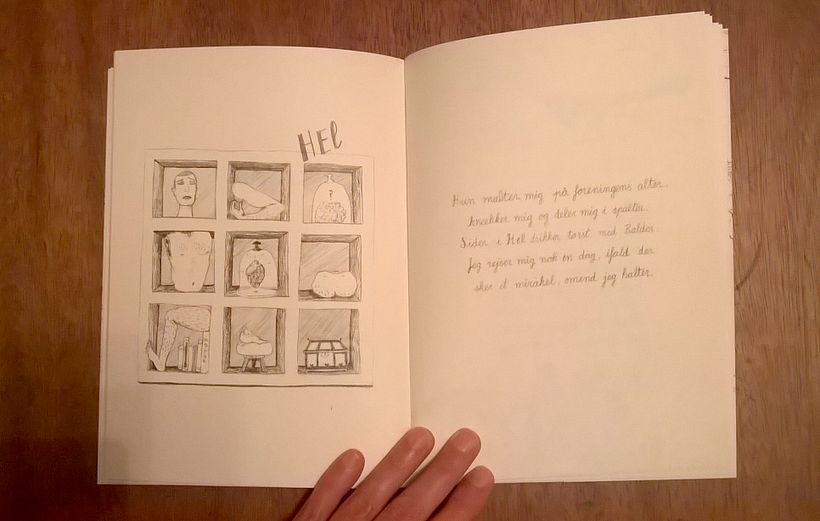 HEl
Hun mig på foreningens alter,
knækker mig og deler mig i spalter.
i Hel drikker tørst med Balder.
Jeg rejser mig nok en dag, ifald der
sker et mirakel, omend jeg halter.